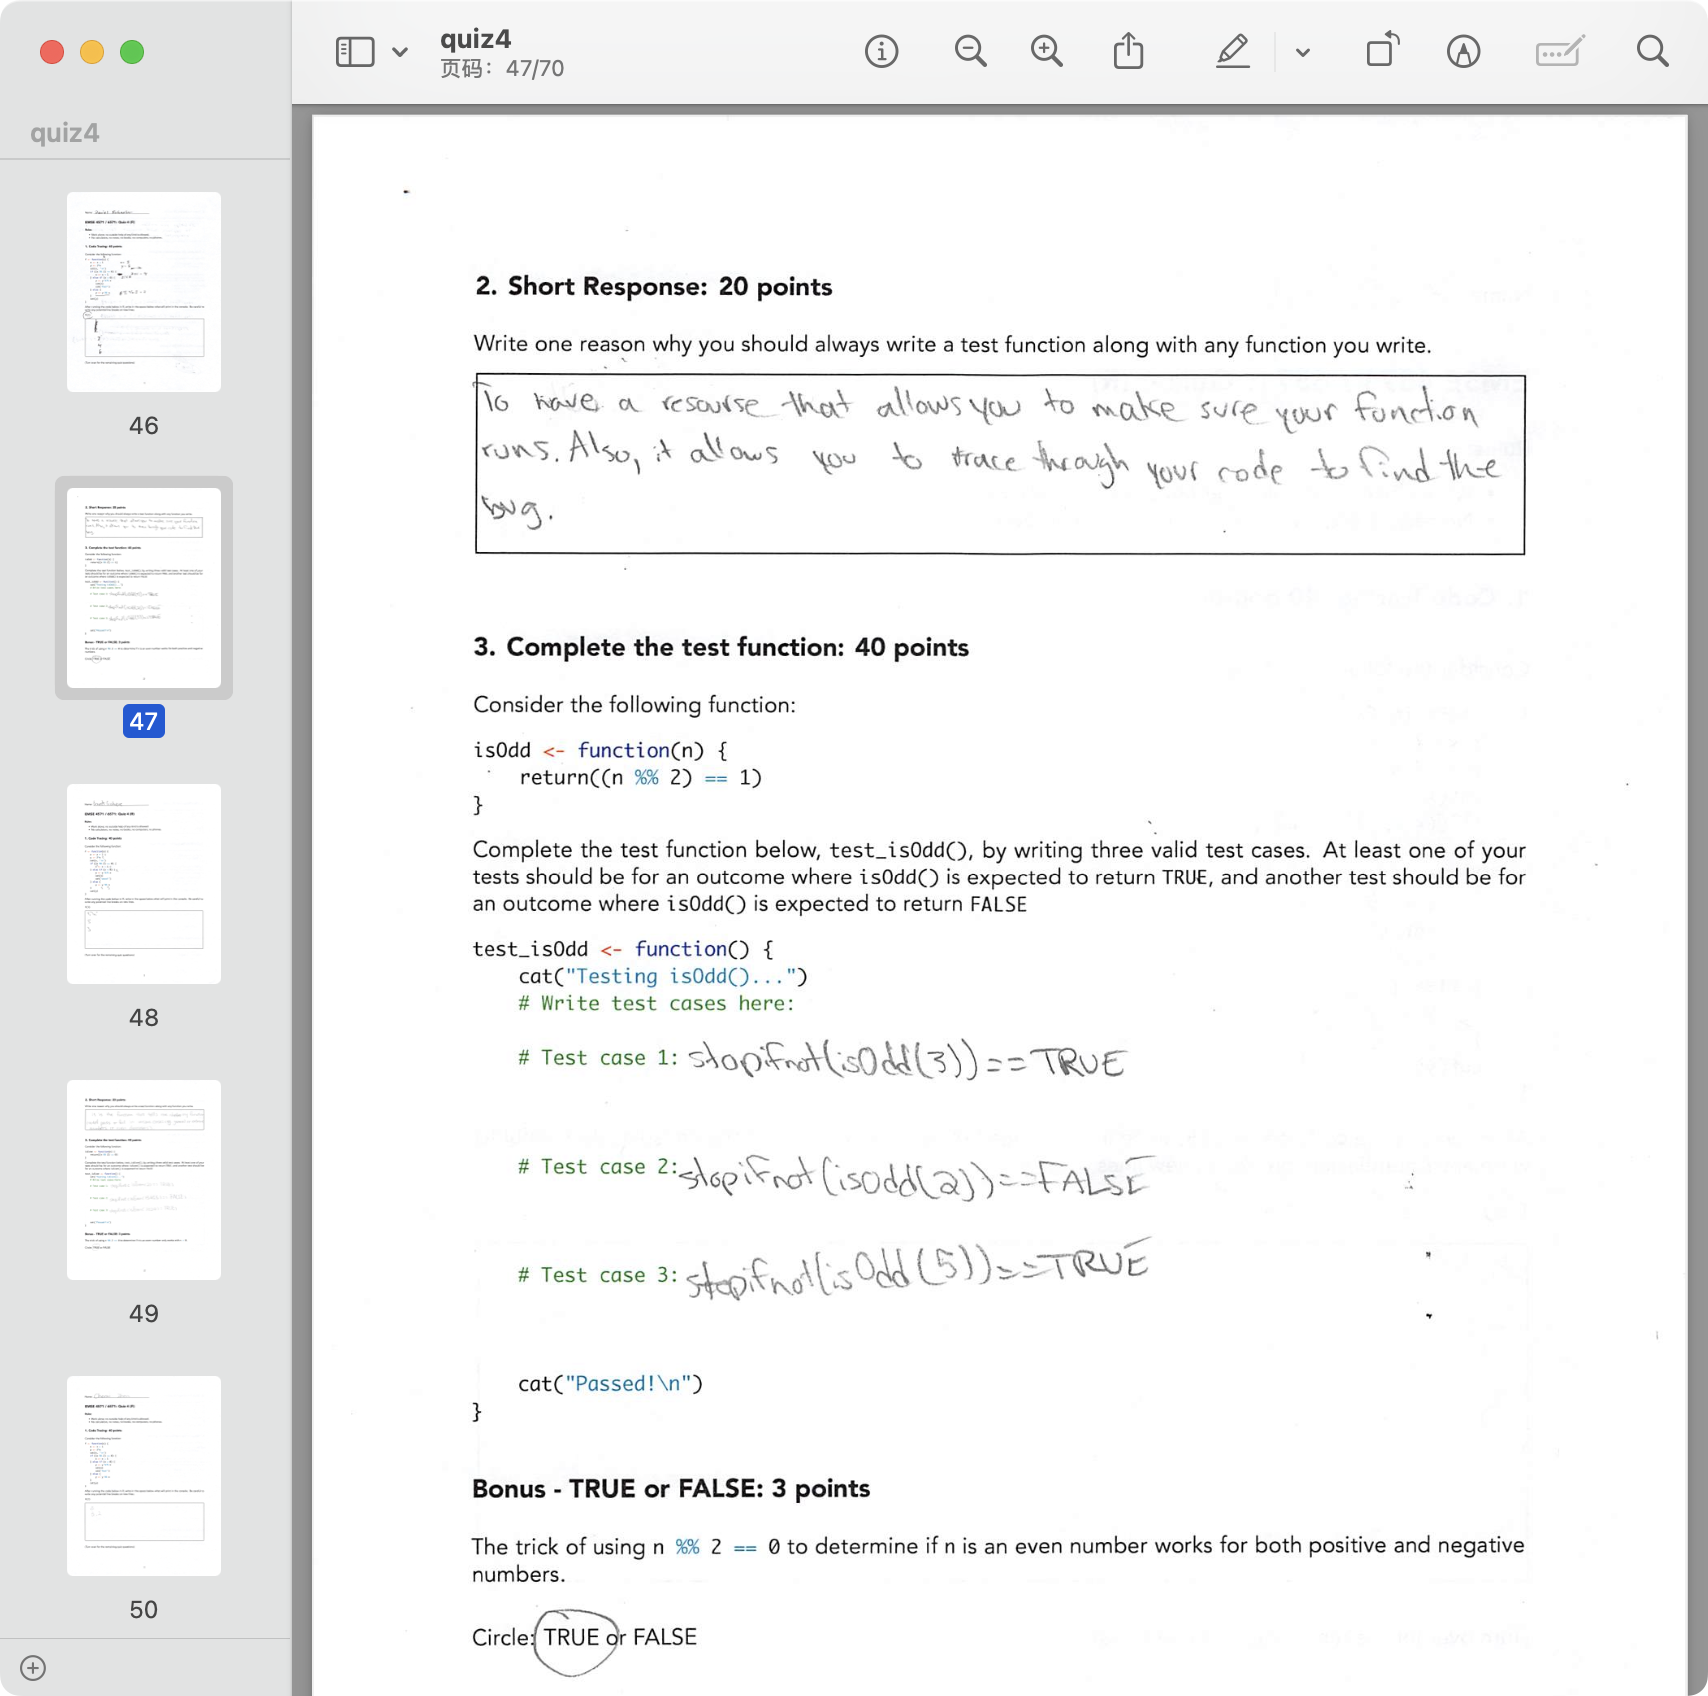 quiz4
页码：47/70
quiz4
46
47
48
49
50
2. Short Response: 20 points
Write one reason why you should always write a test function along with any function you write.
To have a resourse that allows you to make sure your function
runs. Also, it allows you to trace through your code to find the
bug.
3. Complete the test function: 40 points
Consider the following function:
isOdd <- function(n) {
return((n %% 2) == 1)
}
Complete the test function below, test_isOdd(), by writing three valid test cases. At least one of your
tests should be for an outcome where isOdd() is expected to return TRUE, and another test should be for
an outcome where isOdd() is expected to return FALSE
test_isOdd <- function() {
cat("Testing isOdd()...")
# Write test cases here:
# Test case 1: stopifnot(isOdd(3))==TRUE
# Test case 2: stopifnot(isOdd(2))==FALSE
# Test case 3: stopifnot(isOdd(5))==TRUE
cat("Passed!\n")
}
Bonus - TRUE or FALSE: 3 points
The trick of using n %% 2 == 0 to determine if n is an even number works for both positive and negative
numbers.
Circle: TRUE or FALSE